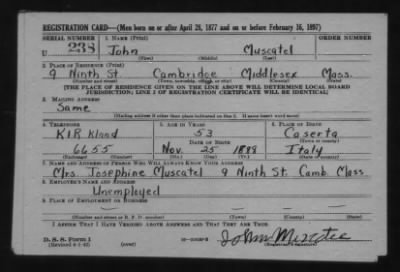 REGISTRATION CARD—(Men born on or after April 28, 1877 and on or before February 16, 1897)
SERIAL NUMBER 1. NAME (Print) ORDER NUMBER
U 238 John Muscatel
(First) (Middle) (Last)
2. PLACE OF RESIDENCE (Print)
9 Ninth St. Cambridge Middlesex Mass.
(Number and street) (Town, township, village, or city) (County) (State)
[THE PLACE OF RESIDENCE GIVEN ON THE LINE ABOVE WILL DETERMINE LOCAL BOARD
JURISDICTION; LINE 2 OF REGISTRATION CERTIFICATE WILL BE IDENTICAL]
3. MAILING ADDRESS
Same
[Mailing address if other than place indicated on line 2. If same insert word same]
4. TELEPHONE 5. AGE IN YEARS 6. PLACE OF BIRTH
KIR Kland 53 Caserta
DATE OF BIRTH (Town or county)
6655 Nov. 25 1888 Italy
(Exchange) (Number) (Mo.) (Day) (Yr.) (State or country)
7. NAME AND ADDRESS OF PERSON WHO WILL ALWAYS KNOW YOUR ADDRESS
Mrs. Josephine Muscatel 9 Ninth St. Camb. Mass
8. EMPLOYER'S NAME AND ADDRESS
Unemployed
9. PLACE OF EMPLOYMENT OR BUSINESS
(Number and street or R. F. D. number) (Town) (County) (State)
I AFFIRM THAT I HAVE VERIFIED ABOVE ANSWERS AND THAT THEY ARE TRUE.
D. S. S. Form 1
(Revised 4-1-42) (over) John
(Registrant's signature)